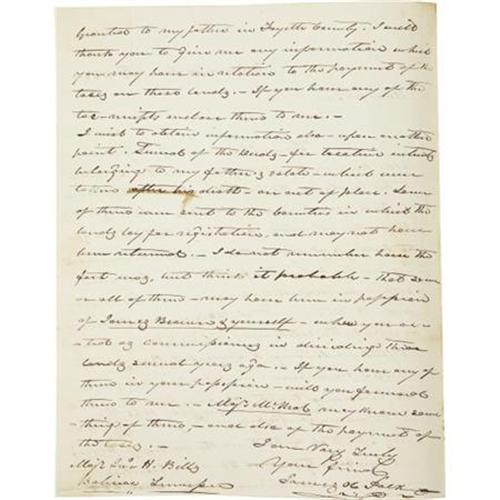 Granted to my father in Fayette County. I will
thank you to give me any information which
you may have in relation to the payment of the
taxes on these lands. - If you have any of the
tax-receipts enclose them to me. -
I wish to obtain information also - upon another
point. Several of the lands - for tracts
belonging to my father's estate - which were
taken after his death - are out of place. Some
of them were sent to the Counties in which the
lands lay for registration, and may not have
been returned. - I do not remember how the
fact was, but think it probable - that some
or all of them - may have been in possession
of James Brown & yourself - when you ac-
-ted as commissioners in dividing the
lands several years ago. - If you have any of
them in your possession - will you forward
them to me. - Majr McNeal may know some
thing of them, - and also of the payment of
the taxes. -
I am Very Truly
Your friend
James K Polk
Majr Jno H. Bills
Bolivar Tennessee